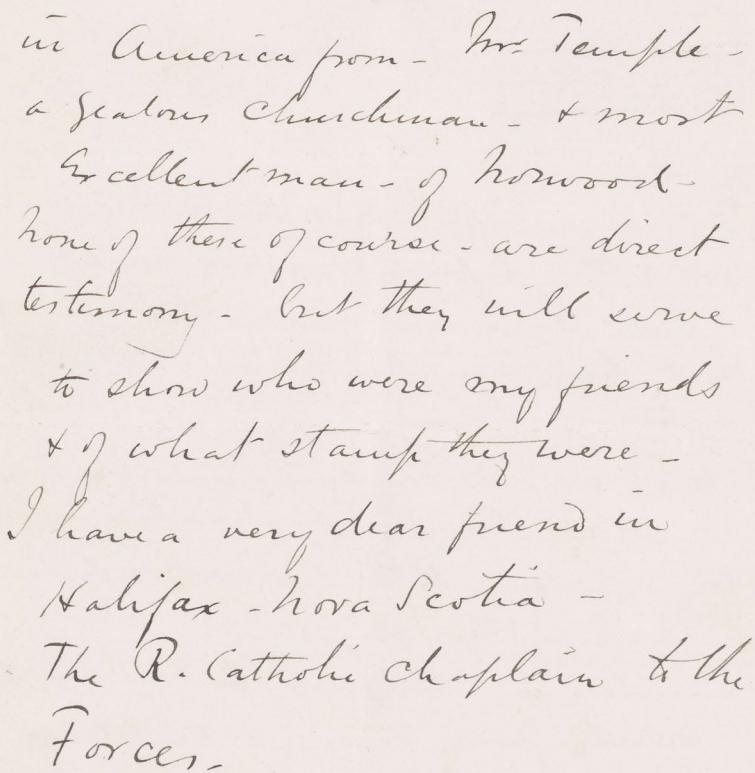 in America from - Mr. Temple -
a zealous Churchman - & most
Excellent man - of Norwood -
None of these of course - are direct
testimony - but they will serve
to show who were my friends
& of what stamp they were -
I have a very dear friend in
Halifax - Nova Scotia -
The R. Catholic Chaplain to the
Forces -